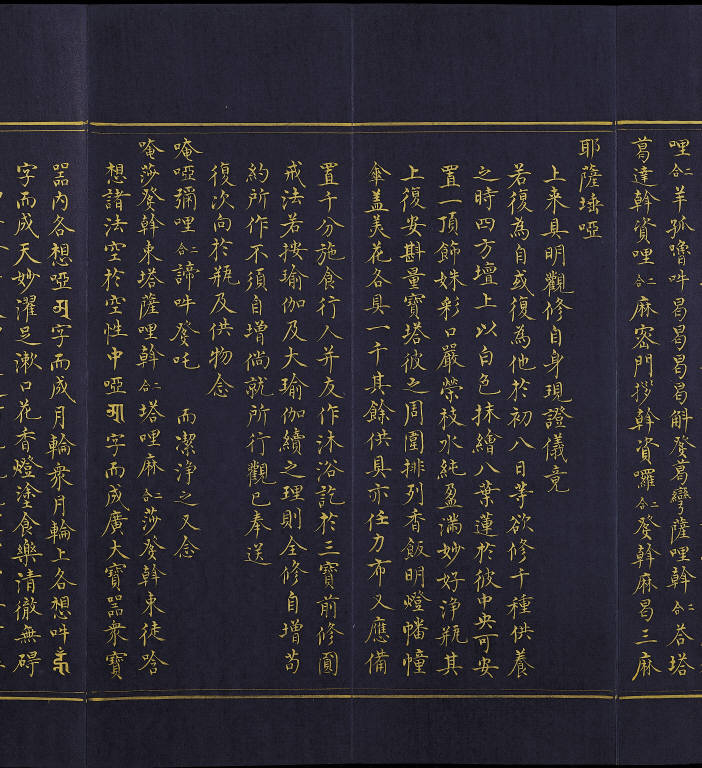 哩合二羊孤嚕吽曷曷曷曷斛發葛彎薩哩幹合二荅塔
葛達幹資哩合二麻容門拶幹資囉合二發幹麻曷三麻
耶薩埵啞
上來具明觀修自身現證儀竟
若復為自或復為他於初八日等欲修千種供養
之時四方壇上以白色抹繪八葉蓮於彼中央可安
置一頂飾姝彩口嚴榮枝水純盈滿妙好淨瓶其
上復安斟量寶塔彼之周圍排列香飯明燈幡幢
傘蓋美花各具一千其餘供具亦任力布又應備
置千分施食行人并友作沐浴訖於三寶前修圓
戒法若按瑜伽及大瑜伽續之理則全修自增苟
約所作不須自增倘就所行觀已奉送
復次向於瓶及供物念
唵啞彌哩合二諦吽發吒 而潔淨之又念
唵莎發幹束塔薩哩幹合二塔哩麻合二莎發幹束徒唅
想諸法空於空性中啞字而成廣大寶器衆寶
器內各想啞字而成月輪衆月輪上各想吽
字而成天妙濯足漱口花香燈塗食樂清徹無碍